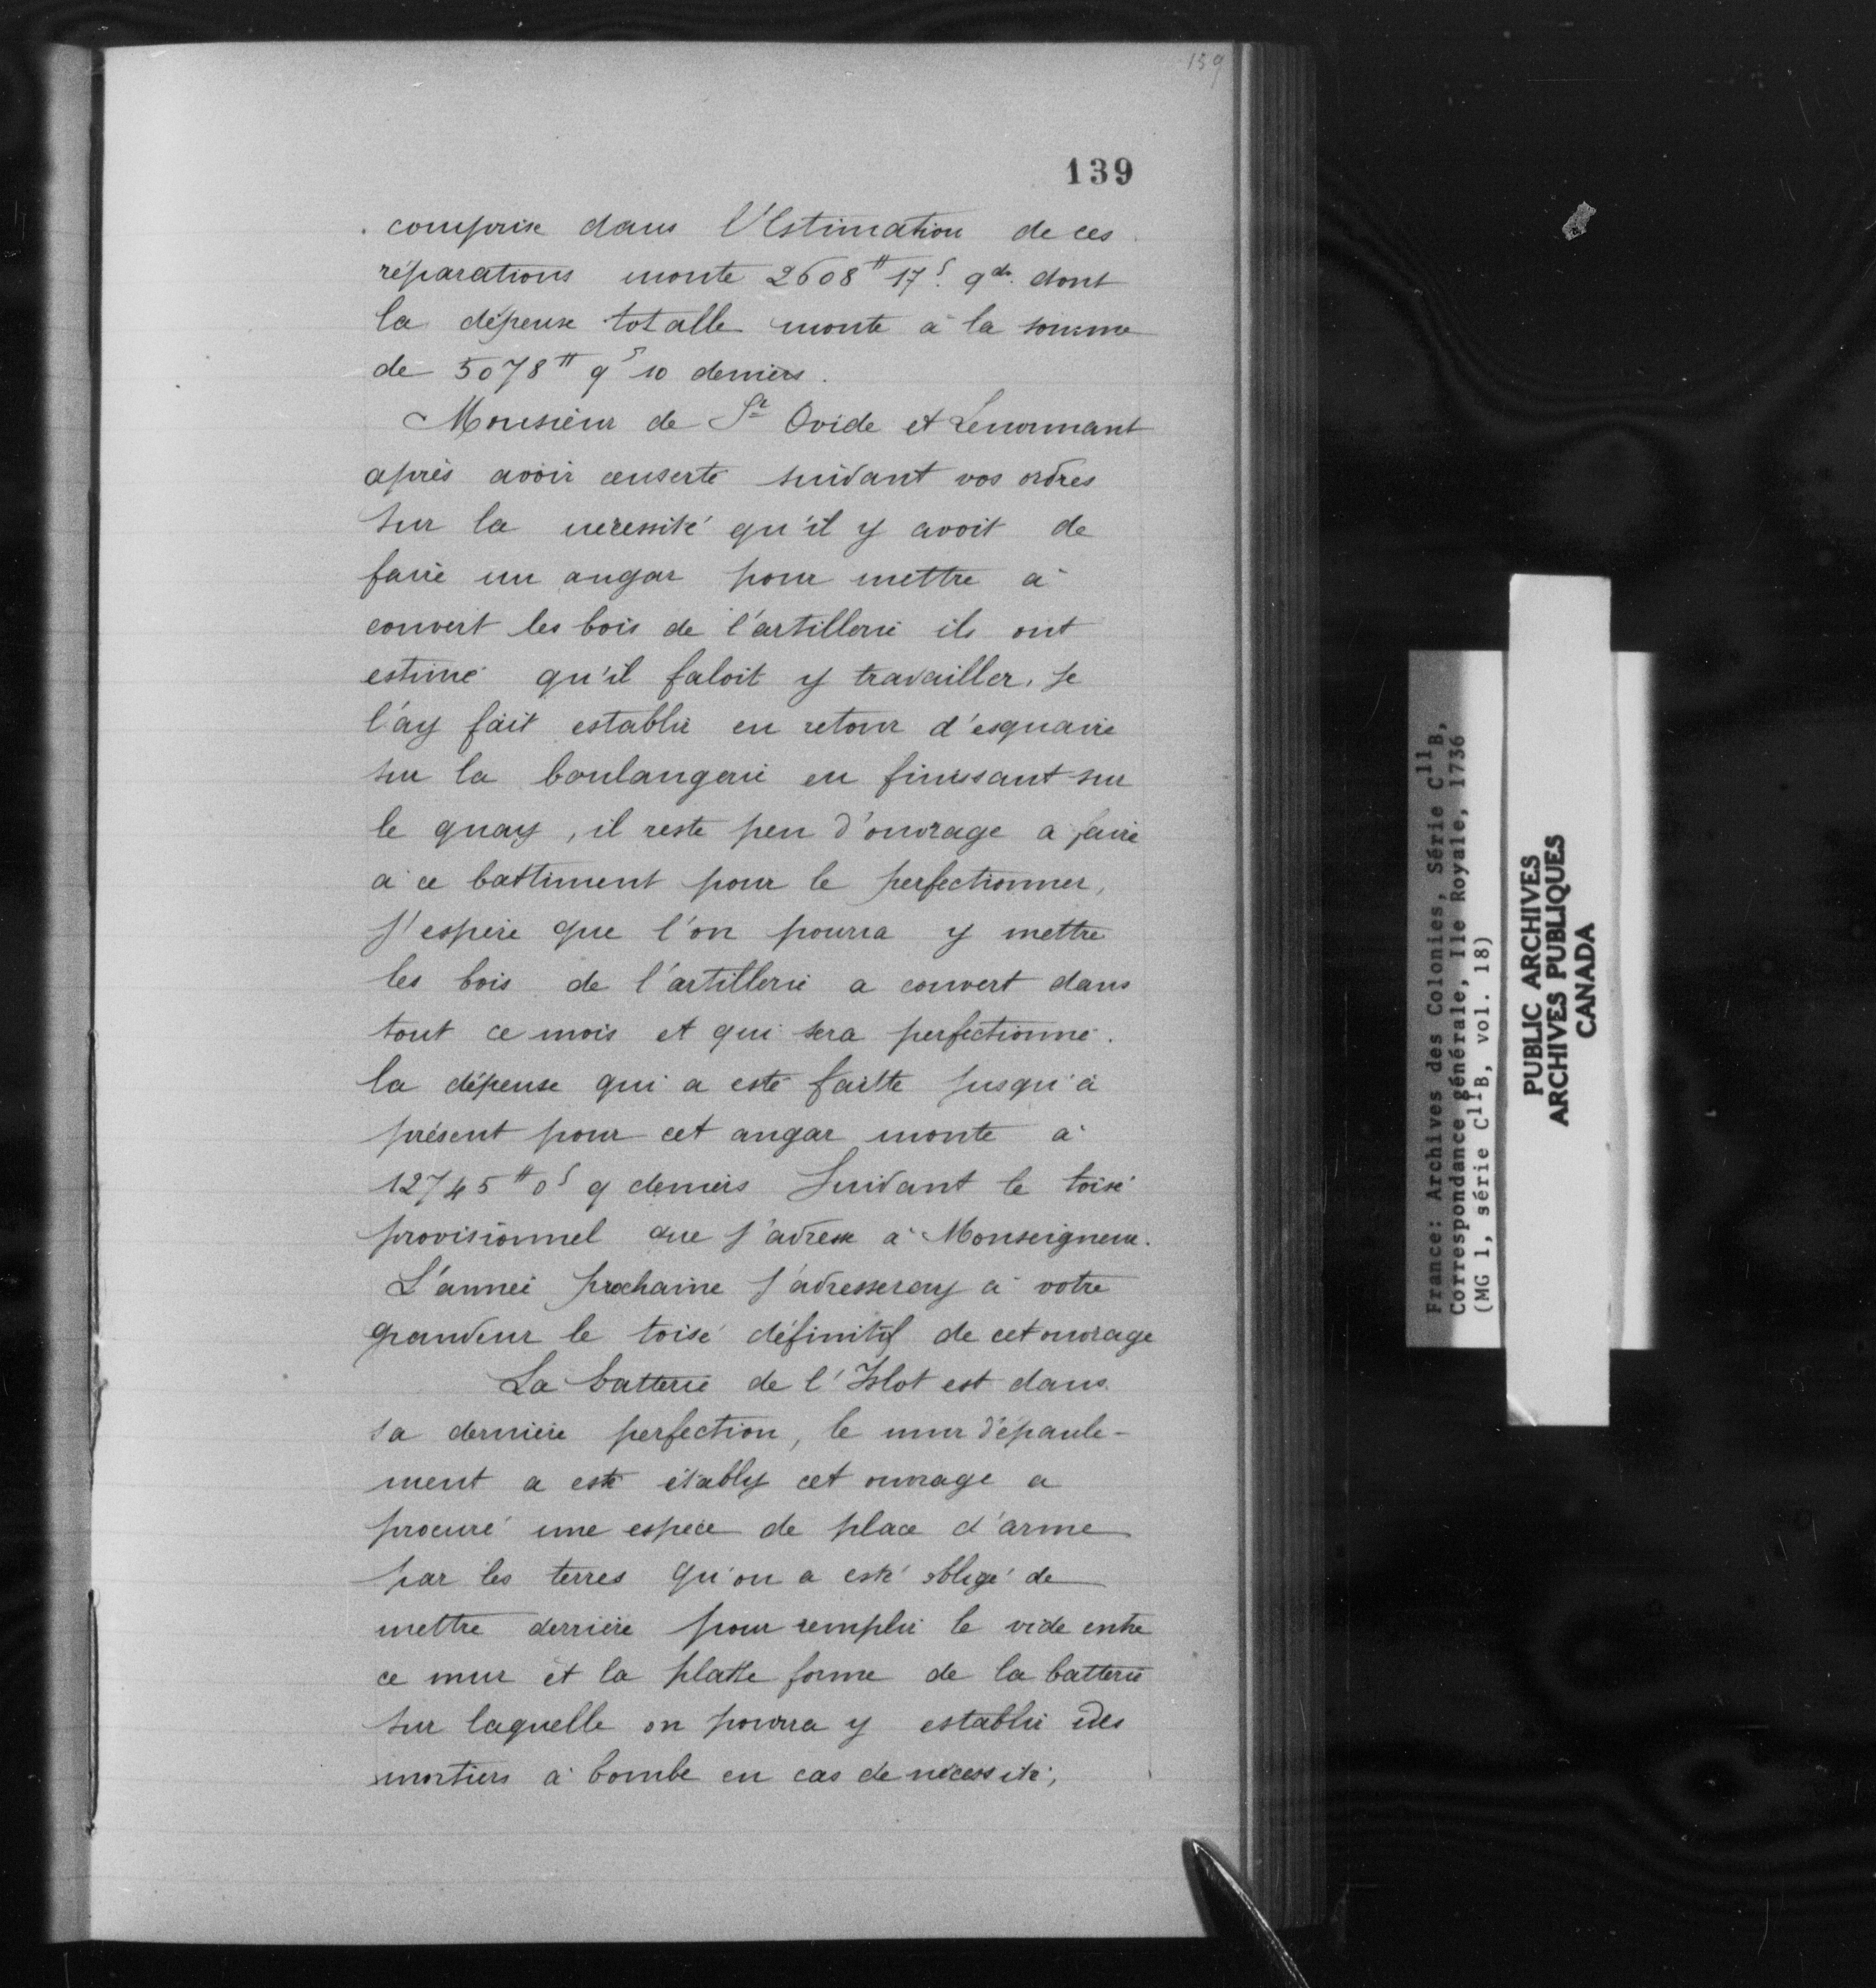 139
139
comprise dans l'Estimation de ces
réparations monte 2608 ₶ 17 s. 9 ds. dont
la dépense totalle monte à la somme
de 5078 ₶ 9 s 10 deniers.
Monsieur de St Ovide et Lenormant
après avoir conserté suivant vos ordres
sur la nécessité qu'il y avoit de
faire un angar pour mettre à
couvert les bois de l'artillerie ils ont
estimé qu'il faloit y travailler. Je
l'ay fait establir en retour d'esquaire
sur la boulangerie en finissant sur
le quay, il reste peu d'ouvrage a faire
à ce battiment pour le perfectionner,
J'espère que l'on pourra y mettre
les bois de l'artillerie a couvert dans
tout ce mois et qui sera perfectionné.
la dépense qui a esté faitte jusqu'à
présent pour cet angar monte à
12745 ₶ 0 s 9 deniers Suivant le toisé
provisionnel que j'adresse à Monseigneur.
L'année prochaine j'adresseray à votre
grandeur le toisé définitif de cet ouvrage
La batterie de l'Islot est dans
sa dernière perfection, le mur d'épaule-
ment a esté étably cet ouvrage a
procuré une espece de place d'arme
par les terres qu'on a esté obligé de
mettre derrière pour remplir le vide entre
ce mur et la platte forme de la batterie
sur laquelle on pourra y establir des
mortiers à bombe en cas de nécessité,
France: Archives des Colonies, Série C11B,
Correspondance générale, Ile Royale, 1736
(MG 1, série C11B, vol. 18)
PUBLIC ARCHIVES
ARCHIVES PUBLIQUES
CANADA